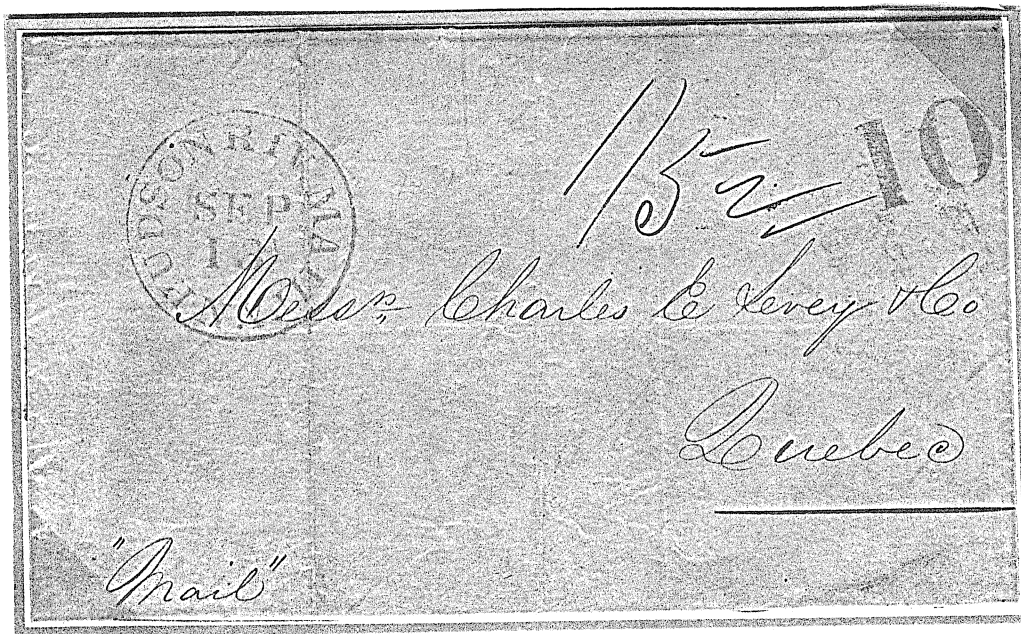 HUDSON RIV. MAIL
SEP
10
Messrs Charles E Levey & Co
Quebec
"Mail"